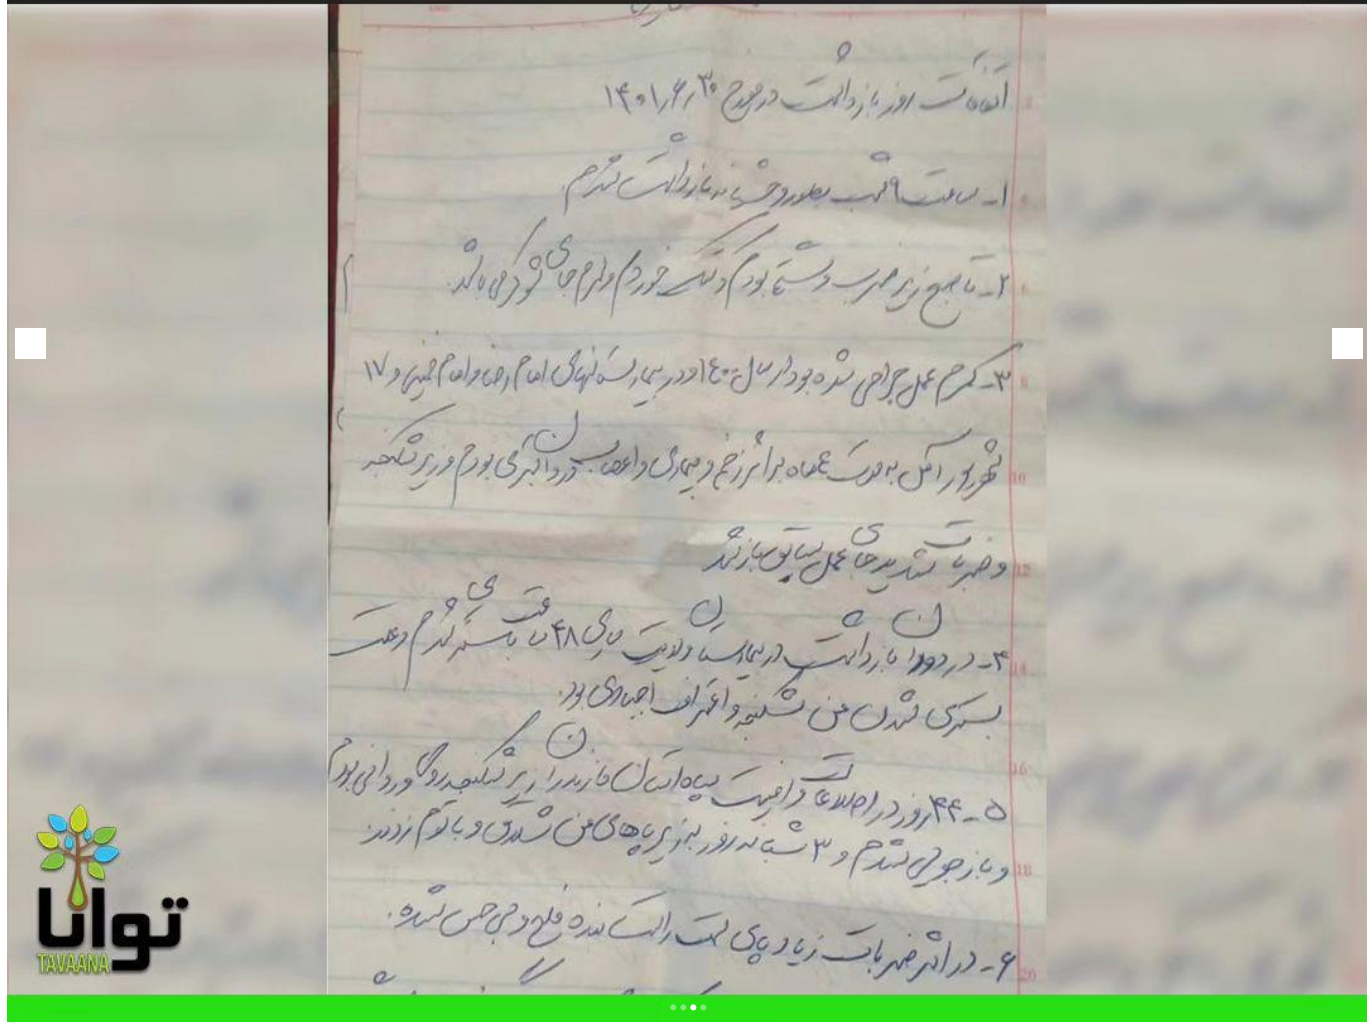 اتفاقات روز بازداشت در مورخ ۱۴۰۱/۶/۳۰
۱- ساعت ۹ شب بصورت وحشیانه بازداشت شدم.
۲- تا صبح زیر ضرب و شتم بودم و کتک خوردم و از جای شوکر می باشد.
۳- کمرم عمل جراحی شده بود از سال ۱۴۰۰ و در بیمارستانهای امام رضا و امام خمینی و ۱۷
شهریور آمل به مدت ۶ ماه بر اثر زخم و بیماری و اعصاب و روان بستری بودم و زیر شکنجه
و ضربات شدید جای عمل سابق باز شد
۴- در دوران بازداشت در بیمارستان ولایت ساری ۴۸ ساعت بستری شدم و علت
بستری شدن من شکنجه و اعتراف اجباری بود.
۵- ۴۴ روز در اطلاعات امنیت سپاه استان مازندران زیر شکنجه روحی و روانی بودم
و بازجویی شدم و ۳ شبانه روز به زیر پاهای من شدیدی و با توم زدند.
۶- در اثر ضربات زیاد پای سمت راست بنده فلج و بی حس شده.
توانا
TAVAANA